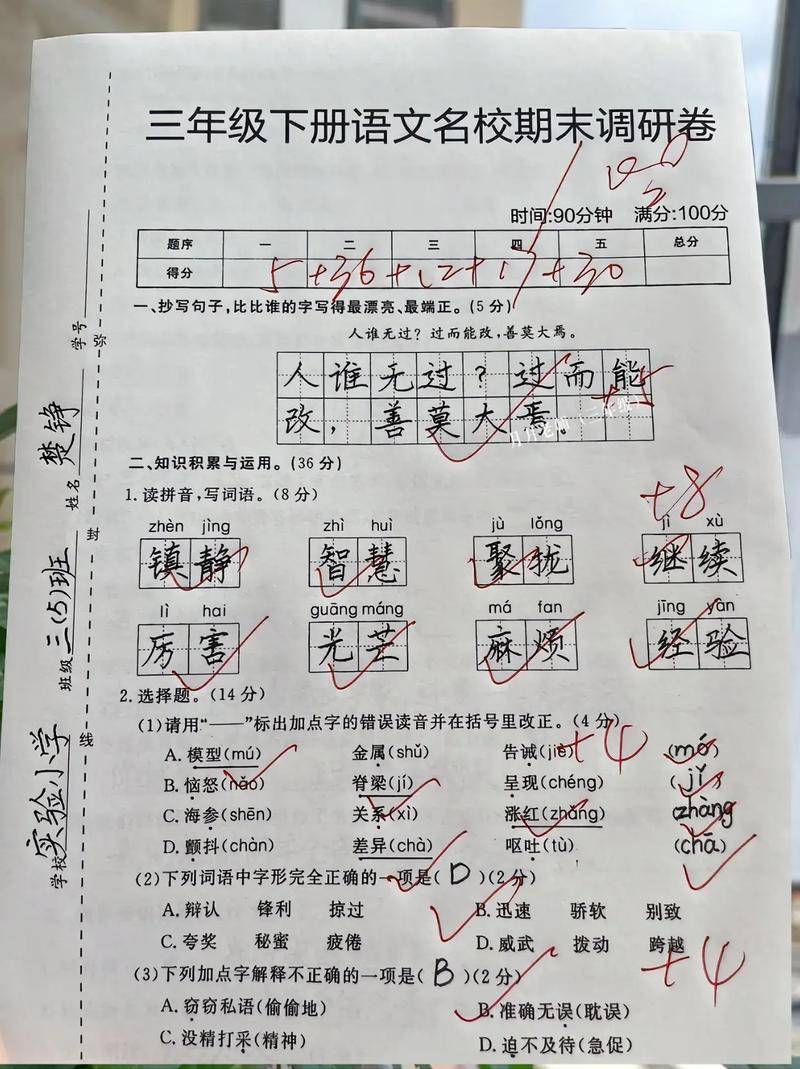 三年级下册语文名校期末调研卷
时间:90分钟 满分:100分
题序 一 二 三 四 五 总分
得分 5 +36 +12 +17 +30
一、抄写句子,比比谁的字写得最漂亮、最端正。(5分)
人谁无过?过而能改,善莫大焉。
人谁无过?过而能
改,善莫大焉。
二、知识积累与运用。(36分)
1.读拼音,写词语。(8分)
+8
zhèn jìng zhì huì jù lǒng jì xù
镇静 智慧 聚拢 继续
lì hai guāng máng má fan jīng yàn
厉害 光芒 麻烦 经验
2.选择题。(14分)
(1)请用“——”标出加点字的错误读音并在括号里改正。(4分)
+4
A.模型(mú) 金属(shǔ) 告诫(jiè) (mó)
B.恼怒(nǎo) 脊梁(jí) 呈现(chéng) (jǐ)
C.海参(shēn) 关系(xì) 涨红(zhǎng) zhàng
D.颤抖(chàn) 差异(chà) 呕吐(tù) (chā)
(2)下列词语中字形完全正确的一项是(D)(2分)
A.辩认 锋利 掠过 B.迅速 骄软 别致
C.夸奖 秘蜜 疲倦 D.威武 拨动 跨越
+4
(3)下列加点字解释不正确的一项是(B)(2分)
A.窃窃私语(偷偷地) B.准确无误(耽误)
C.没精打采(精神) D.迫不及待(急促)
学校 实验小学 班级 三(5)班 姓名 楚铮 学号
弥 封 线